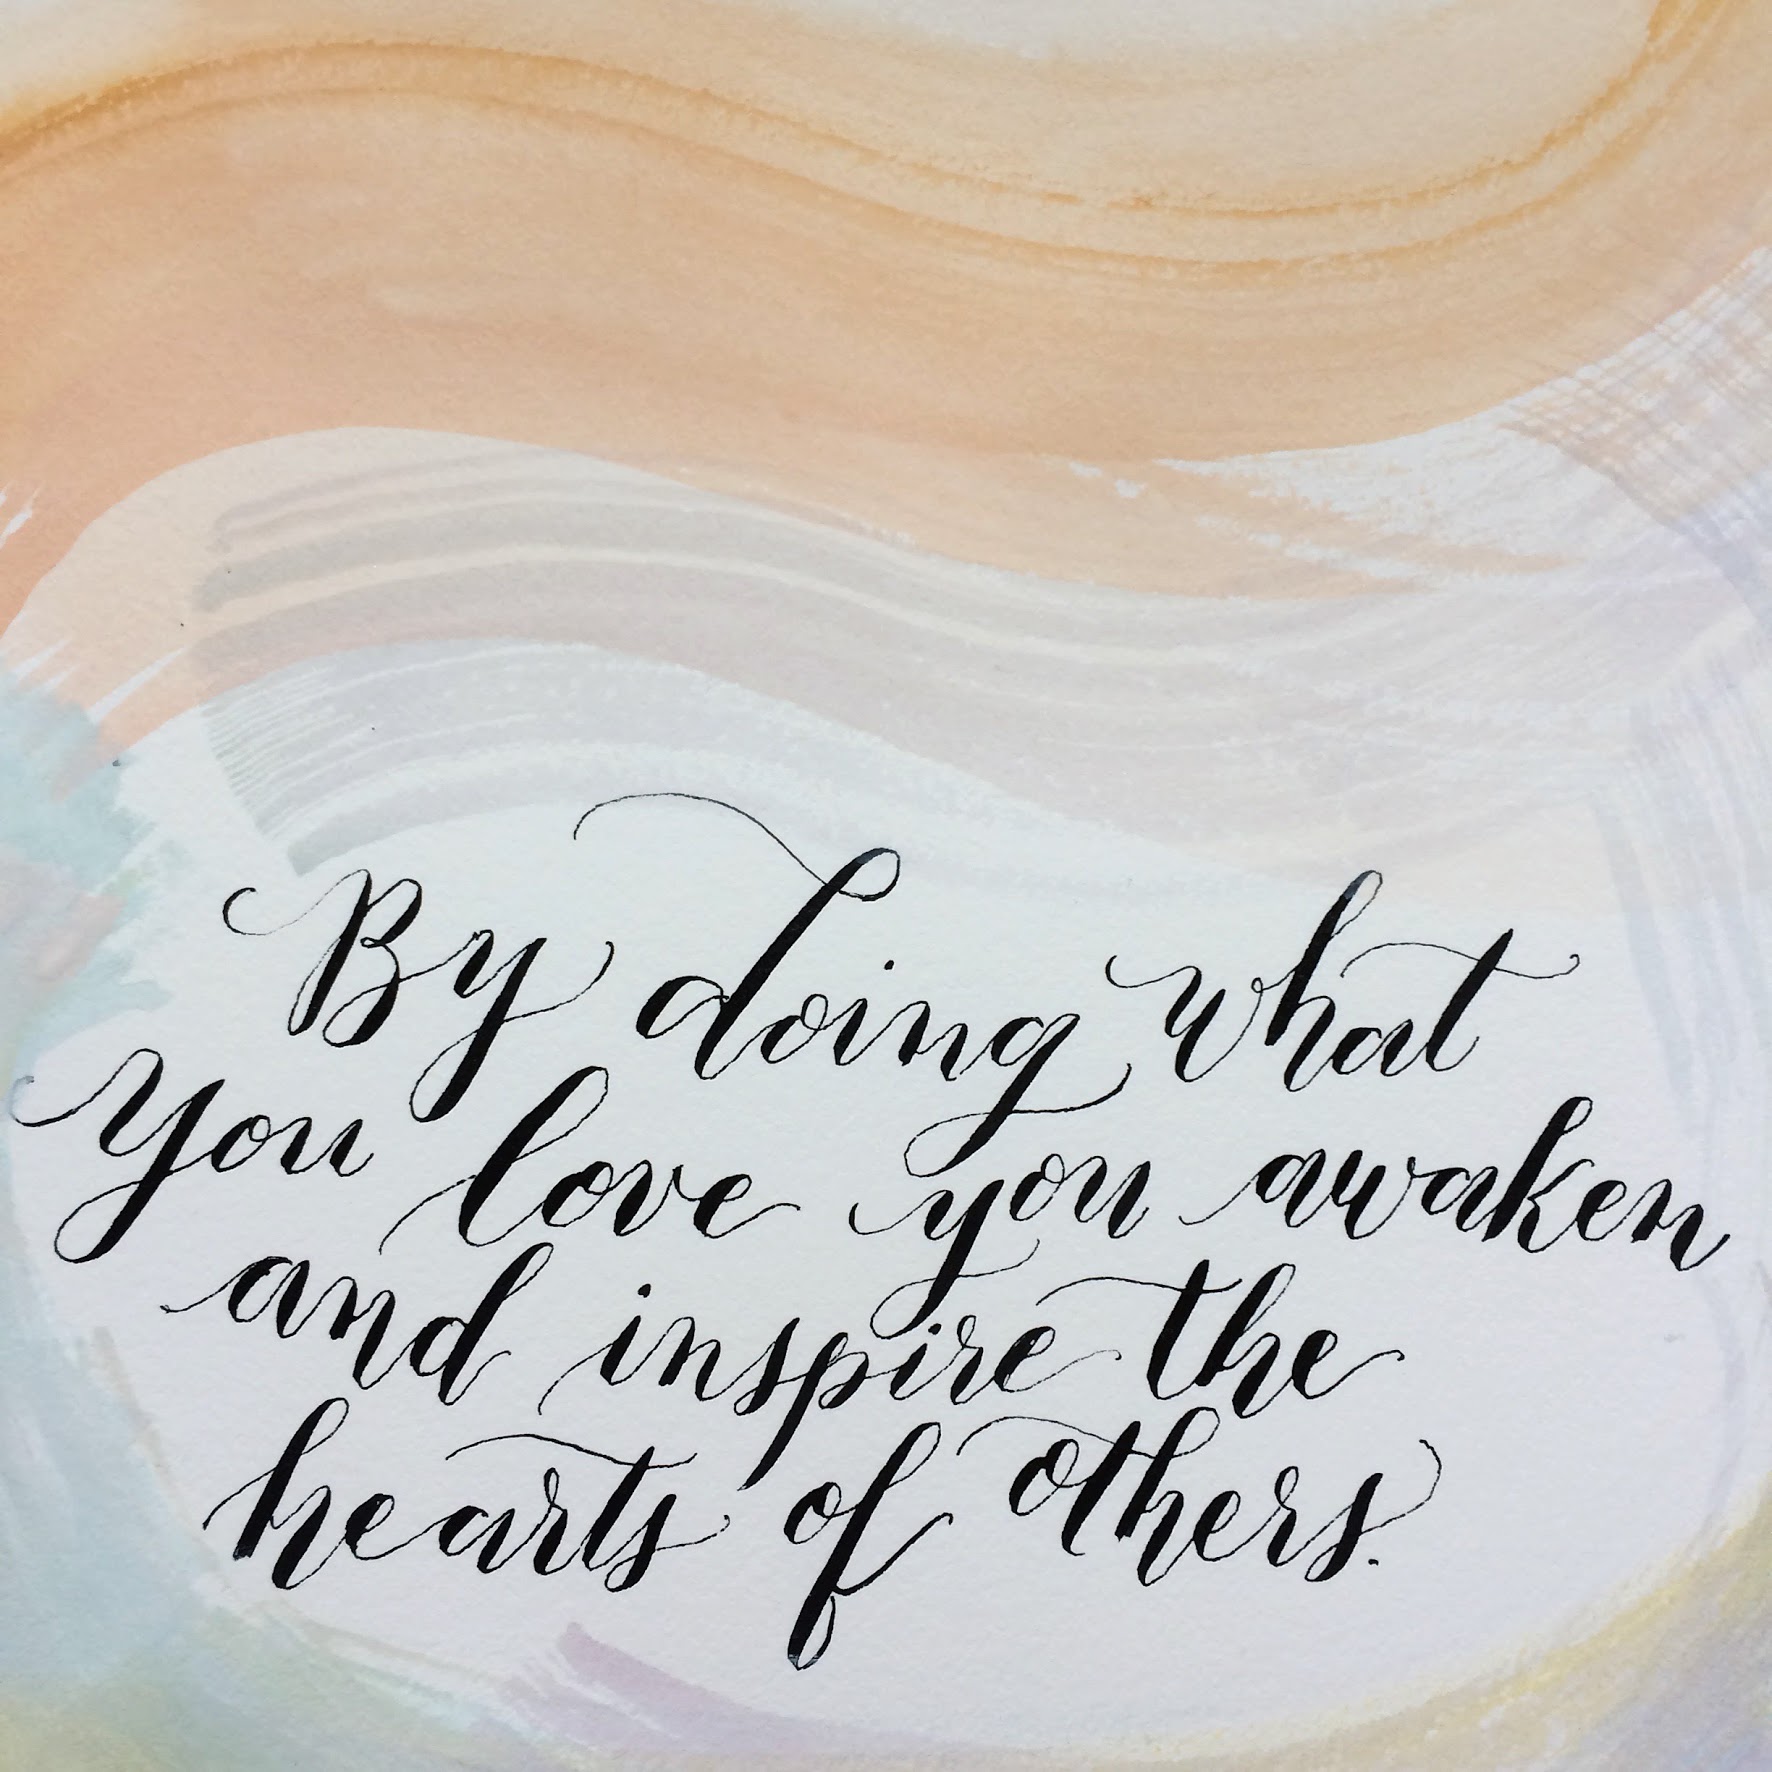 By doing what
you love you awaken
and inspire the
hearts of others.